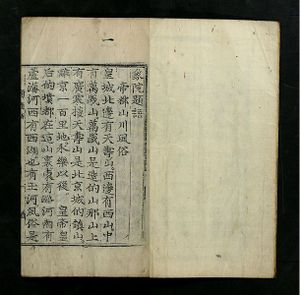 象院題語
帝都山川風俗
皇城北邊有天壽山西邊有西山中
有萬歲山萬歲山是造的山那山上
有廣寒殿天壽山是北京城的鎮山
離京一百里地永樂以後 皇帝皇
后的墳都在這山裏東有潞河南有
蘆溝河西有西湖也有玉河風俗是